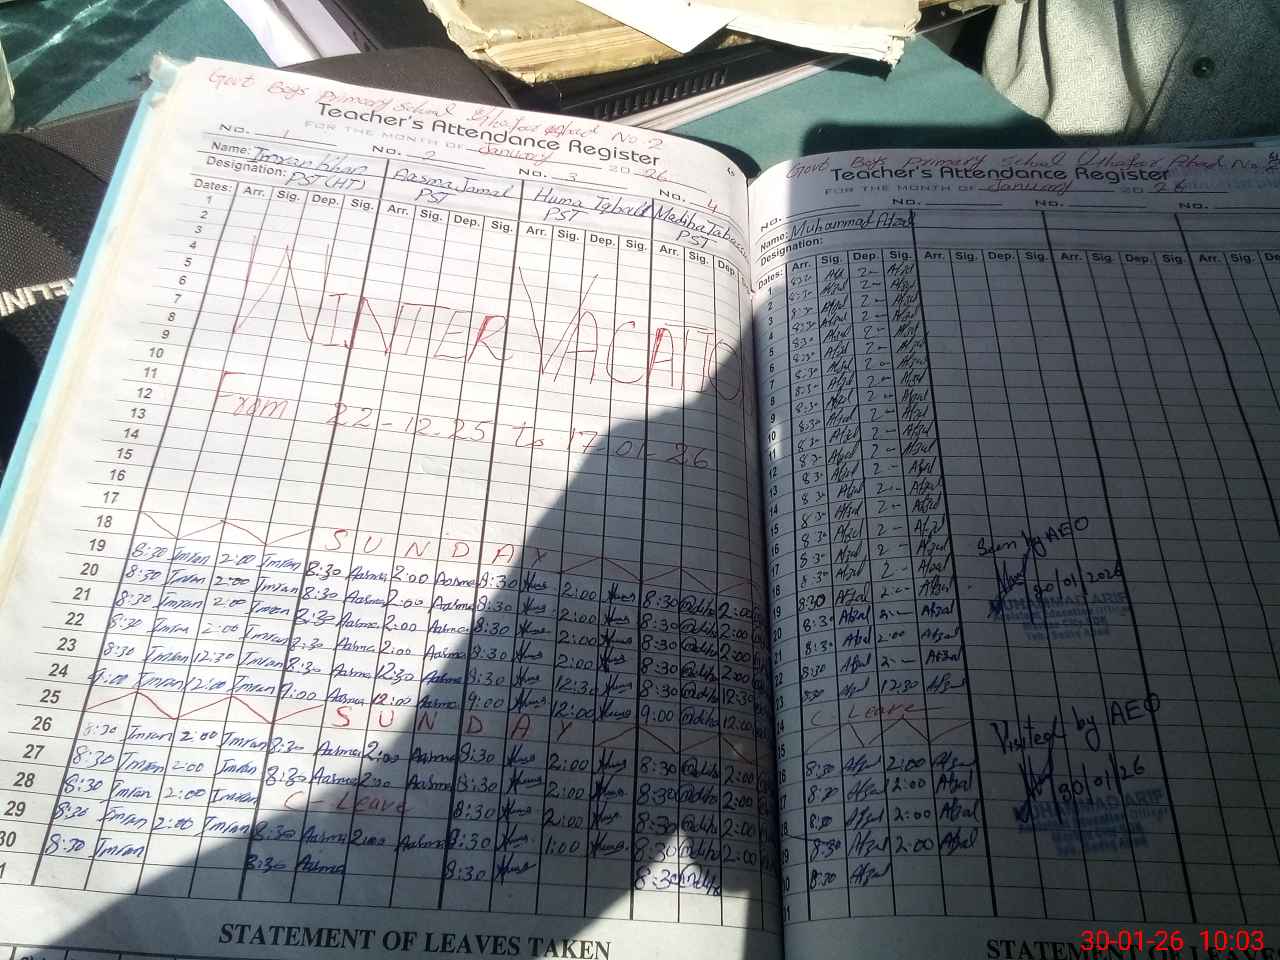 Govt Boys Primary School No 2
Teacher's Attendance Register
FOR THE MONTH OF January 20 26
No. 1 No. 2 No. 3 No. 4
Name: Imran Khan Aasma Jamal Huma Iqbal Madiha
Designation: PST (HT) PST PST PST
Dates: Arr. Sig. Dep. Sig. Arr. Sig. Dep. Sig. Arr. Sig. Dep. Sig. Arr. Sig. Dep.
1
2
3
4
5
6
7
8
9
10
11
12
13
14
15
16
17
WINTER VACATION
From 22-12-25 to 17-01-26
18 SUNDAY
19 8:30 Imran 2:00 Imran 8:30 Aasma 2:00 Aasma 8:30 Huma 2:00 Huma 8:30 2:00
20 8:30 Imran 2:00 Imran 8:30 Aasma 2:00 Aasma 8:30 Huma 2:00 Huma 8:30 2:00
21 8:30 Imran 2:00 Imran 8:30 Aasma 2:00 Aasma 8:30 Huma 2:00 Huma 8:30 2:00
22 8:30 Imran 2:00 Imran 8:30 Aasma 2:00 Aasma 8:30 Huma 2:00 Huma 8:30 2:00
23 8:30 Imran 12:30 Imran 8:30 Aasma 12:30 Aasma 8:30 Huma 12:30 Huma 8:30 12:30
24 9:00 Imran 12:00 Imran 9:00 Aasma 12:00 Aasma 9:00 Huma 12:00 Huma 9:00 12:00
25 SUNDAY
26 8:30 Imran 2:00 Imran 8:30 Aasma 2:00 Aasma 8:30 Huma 2:00 Huma 8:30 2:00
27 8:30 Imran 2:00 Imran 8:30 Aasma 2:00 Aasma 8:30 Huma 2:00 Huma 8:30 2:00
28 8:30 Imran 2:00 Imran C-Leave 8:30 Huma 2:00 Huma 8:30 2:00
29 8:30 Imran 2:00 Imran 8:30 Aasma 2:00 Aasma 8:30 Huma 1:00 Huma 8:30 2:00
30 8:30 Imran 8:30 Aasma 8:30 Huma 8:30
STATEMENT OF LEAVES TAKEN
Govt Boys primary school No 2
Teacher's Attendance Register
FOR THE MONTH OF January 20 26
No. No. No. No.
Name: Muhammad Afzal
Designation:
Dates: Arr. Sig. Dep. Sig. Arr. Sig. Dep. Sig. Arr. Sig. Dep. Sig. Arr. Sig. Dep.
1 8:30 Afzal 2- Afzal
2 8:30 Afzal 2- Afzal
3 8:30 Afzal 2- Afzal
4 8:30 Afzal 2- Afzal
5 8:30 Afzal 2- Afzal
6 8:30 Afzal 2- Afzal
7 8:30 Afzal 2- Afzal
8 8:30 Afzal 2- Afzal
9 8:30 Afzal 2- Afzal
10 8:30 Afzal 2- Afzal
11 8:30 Afzal 2- Afzal
12 8:30 Afzal 2- Afzal
13 8:30 Afzal 2- Afzal
14 8:30 Afzal 2- Afzal
15 8:30 Afzal 2- Afzal
16 8:30 Afzal 2- Afzal
17 8:30 Afzal 2- Afzal
18 8:30 Afzal 2- Afzal
19 8:30 Afzal 2- Afzal
20 8:30 Afzal 2:00 Afzal
21 8:30 Afzal 2- Afzal
8:30 Afzal 12:30 Afzal
C-Leave
8:30 Afzal 2:00 Afzal
8:30 Afzal 2:00 Afzal
8:30 Afzal 2:00 Afzal
8:30 Afzal 2:00 Afzal
8:30 Afzal
Seen by AEO
30/01/2026
MUHAMMAD ARIF
Visited by AEO
30/01/26
MUHAMMAD ARIF
STATEMENT OF LEAVES
30-01-26 10:03